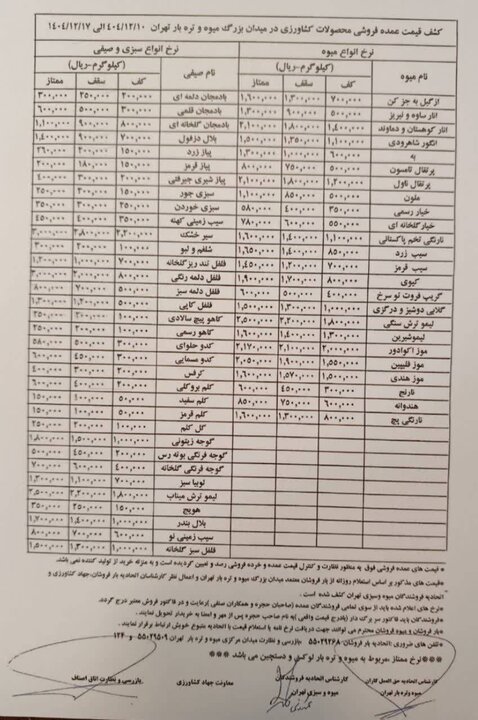 کشف قیمت عمده فروشی محصولات کشاورزی در میدان بزرگ میوه و تره بار تهران ۱۴۰۴/۱۲/۱۰ الی ۱۴۰۴/۱۲/۱۷
نرخ انواع میوه نرخ انواع سبزی و صیفی
نام میوه (کیلوگرم-ریال) نام صیفی (کیلوگرم-ریال)
کف سقف ممتاز کف سقف ممتاز
ازگیل به جز کن ۷۰۰,۰۰۰ ۱,۳۰۰,۰۰۰ ۱,۶۰۰,۰۰۰ بادمجان دلمه ای ۲۰۰,۰۰۰ ۲۵۰,۰۰۰ ۳۰۰,۰۰۰
انار ساوه و نیریز ۵۰۰,۰۰۰ ۹۰۰,۰۰۰ ۱,۳۰۰,۰۰۰ بادمجان قلمی ۳۰۰,۰۰۰ ۵۰۰,۰۰۰ ۶۰۰,۰۰۰
انار کوهستان و دماوند ۱,۴۰۰,۰۰۰ ۱,۸۰۰,۰۰۰ ۲,۱۰۰,۰۰۰ بادمجان گلخانه ای ۸۰۰,۰۰۰ ۹۰۰,۰۰۰ ۱,۱۰۰,۰۰۰
انگور شاهرودی ۱,۱۰۰,۰۰۰ ۱,۳۵۰,۰۰۰ ۱,۵۰۰,۰۰۰ بلال دزفول ۷۰۰,۰۰۰ ۹۰۰,۰۰۰ ۱,۴۰۰,۰۰۰
به ۶۰۰,۰۰۰ ۱,۰۰۰,۰۰۰ ۱,۳۰۰,۰۰۰ پیاز زرد ۱۵۰,۰۰۰ ۲۰۰,۰۰۰ ۲۶۰,۰۰۰
پرتقال تامسون ۵۰۰,۰۰۰ ۷۵۰,۰۰۰ ۸۰۰,۰۰۰ پیاز قرمز ۱۵۰,۰۰۰ ۱۸۰,۰۰۰ ۲۰۰,۰۰۰
پرتقال ناول ۱,۲۰۰,۰۰۰ ۱,۸۰۰,۰۰۰ ۲,۱۰۰,۰۰۰ پیاز شیری جیرفتی ۲۰۰,۰۰۰ ۳۰۰,۰۰۰ ۴۰۰,۰۰۰
ملون ۵۰۰,۰۰۰ ۸۵۰,۰۰۰ ۱,۱۰۰,۰۰۰ سبزی جور ۱۵۰,۰۰۰ ۲۰۰,۰۰۰ ۲۵۰,۰۰۰
خیار رسمی ۳۵۰,۰۰۰ ۴۰۰,۰۰۰ ۵۸۰,۰۰۰ سبزی خوردن ۲۵۰,۰۰۰ ۳۰۰,۰۰۰ ۳۵۰,۰۰۰
خیار گلخانه ای ۵۵۰,۰۰۰ ۶۰۰,۰۰۰ ۷۸۰,۰۰۰ سیب زمینی کهنه ۳۵۰,۰۰۰ ۴۰۰,۰۰۰ ۴۵۰,۰۰۰
نارنگی تخم پاکستانی ۱,۱۰۰,۰۰۰ ۱,۴۰۰,۰۰۰ ۱,۶۰۰,۰۰۰ سیر خشک ۲,۲۰۰,۰۰۰ ۲,۸۰۰,۰۰۰ ۳,۰۰۰,۰۰۰
سیب زرد ۸۵۰,۰۰۰ ۱,۴۰۰,۰۰۰ ۱,۶۵۰,۰۰۰ شلغم و لبو ۱۰۰,۰۰۰ ۲۰۰,۰۰۰ ۳۰۰,۰۰۰
سیب قرمز ۷۰۰,۰۰۰ ۱,۲۰۰,۰۰۰ ۱,۴۵۰,۰۰۰ فلفل تند ریز گلخانه ۷۰۰,۰۰۰ ۱,۰۰۰,۰۰۰ ۱,۲۰۰,۰۰۰
کیوی ۸۰۰,۰۰۰ ۱,۷۰۰,۰۰۰ ۱,۹۰۰,۰۰۰ فلفل دلمه رنگی ۸۰۰,۰۰۰ ۲,۰۰۰,۰۰۰ ۳,۰۰۰,۰۰۰
گریپ فروت تو سرخ ۴۰۰,۰۰۰ ۵۰۰,۰۰۰ ۶۰۰,۰۰۰ فلفل دلمه سبز ۵۰۰,۰۰۰ ۷۰۰,۰۰۰ ۸۰۰,۰۰۰
گلابی دوشیز و درگزی ۱,۰۰۰,۰۰۰ ۱,۳۰۰,۰۰۰ ۱,۵۰۰,۰۰۰ فلفل کاپی ۵۰۰,۰۰۰ ۱,۲۰۰,۰۰۰ ۱,۳۰۰,۰۰۰
لیمو ترش سنگی ۱,۸۰۰,۰۰۰ ۲,۲۰۰,۰۰۰ ۲,۵۰۰,۰۰۰ کاهو پیچ سالادی ۱۰۰,۰۰۰ ۲۰۰,۰۰۰ ۲۵۰,۰۰۰
لیموشیرین ۱,۳۰۰,۰۰۰ ۱,۴۰۰,۰۰۰ ۱,۶۰۰,۰۰۰ کاهو رسمی ۱۰۰,۰۰۰ ۲۰۰,۰۰۰ ۲۵۰,۰۰۰
موز اکوادور ۲,۰۰۰,۰۰۰ ۲,۱۰۰,۰۰۰ ۲,۱۷۰,۰۰۰ کدو حلوای ۳۰۰,۰۰۰ ۵۰۰,۰۰۰ ۵۸۰,۰۰۰
موز فلیپین ۱,۵۵۰,۰۰۰ ۱,۹۰۰,۰۰۰ ۲,۰۵۰,۰۰۰ کدو مسمایی ۳۰۰,۰۰۰ ۴۵۰,۰۰۰ ۶۰۰,۰۰۰
موز هندی ۱,۵۰۰,۰۰۰ ۱,۵۷۰,۰۰۰ ۱,۶۰۰,۰۰۰ کرفس ۲۰۰,۰۰۰ ۳۰۰,۰۰۰ ۴۰۰,۰۰۰
نارنج ۳۰۰,۰۰۰ ۴۵۰,۰۰۰ ۶۰۰,۰۰۰ کلم بروکلی ۲۰۰,۰۰۰ ۴۰۰,۰۰۰ ۶۰۰,۰۰۰
هندوانه ۶۰۰,۰۰۰ ۷۵۰,۰۰۰ ۸۵۰,۰۰۰ کلم سفید ۵۰,۰۰۰ ۱۰۰,۰۰۰ ۱۵۰,۰۰۰
نارنگی پیج ۸۰۰,۰۰۰ ۱,۳۰۰,۰۰۰ ۱,۶۰۰,۰۰۰ کلم قرمز ۵۰,۰۰۰ ۱۰۰,۰۰۰ ۱۵۰,۰۰۰
گل کلم ۱۰۰,۰۰۰ ۲۰۰,۰۰۰ ۲۵۰,۰۰۰
گوجه زیتونی ۱,۰۰۰,۰۰۰ ۱,۵۰۰,۰۰۰ ۱,۸۰۰,۰۰۰
گوجه فرنگی بوته رس ۲۰۰,۰۰۰ ۴۵۰,۰۰۰ ۵۰۰,۰۰۰
گوجه فرنگی گلخانه ۴۰۰,۰۰۰ ۶۰۰,۰۰۰ ۷۰۰,۰۰۰
لوبیا سبز ۷۰۰,۰۰۰ ۱,۱۰۰,۰۰۰ ۱,۳۰۰,۰۰۰
لیمو ترش میناب ۱,۸۰۰,۰۰۰ ۲,۲۰۰,۰۰۰ ۲,۵۰۰,۰۰۰
هویج ۱۵۰,۰۰۰ ۲۵۰,۰۰۰ ۳۵۰,۰۰۰
بلال بندر ۱,۰۰۰,۰۰۰ ۱,۴۰۰,۰۰۰ ۱,۷۰۰,۰۰۰
سیب زمینی نو ۶۰۰,۰۰۰ ۷۰۰,۰۰۰ ۸۰۰,۰۰۰
فلفل سبز گلخانه ۱,۰۰۰,۰۰۰ ۱,۳۰۰,۰۰۰ ۱,۵۰۰,۰۰۰
* قیمت های عمده فروشی فوق به منظور نظارت و کنترل قیمت عمده و خرده فروشی رصد و تعیین گردیده است و به منزله خرید از تولید کننده نمی باشد.
*قیمت های مذکور بر اساس استعلام روزانه از بار فروشان معتمد میدان بزرگ میوه و تره بار تهران و اعمال نظر کارشناسان اتحادیه بار فروشان، جهاد کشاورزی و
اتحادیه فروشندگان میوه وسبزی تهران کشف شده است .
*نرخ های اعلام شده باید از سوی تمامی فروشندگان عمده (صاحبان حجره و همکاران صنفی )رعایت و در فاکتور فروش معتبر درج گردد.
*فروشندگان باید فاکتور سر برگ دار (بادرج قیمت واقعی )به نام صاحب حجره پس از مهر و امضا به خریدار تحویل نمایند .
*بار فروشان و میوه فروشان محترم می توانند جهت دریافت نرخ نامه یا استعلام قیمت با اتحادیه متبوع خویش ارتباط برقرار نمایند.
*تلفن های ضروری :اتحادیه بار فروشان ۵۵۰۲۹۲۶۸ -بازرسی و نظارت میدان مرکزی میوه و تره بار تهران ۵۵۰۲۹۵۰۹ و ۱۲۴
***نرخ ممتاز ،مربوط به میوه و تره بار لوکس و دستچین می باشد ***
کارشناس اتحادیه حق العمل کاران میوه وتره بار تهران
کارشناس اتحادیه فروشندگان میوه و سبزی تهران
معاونت جهاد کشاورزی
بازرسی و نظارت اتاق اصناف